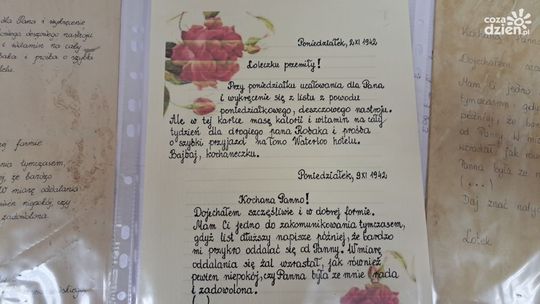 coza
dzień.pl
dla Pana i wykręcenie
i witamin na cały
Poniedziałek, 2 XI 1942
Loleczku przemiły!
Przy poniedziałku ucałowania dla Pana
i wykręcenie się z listu z powodu
poniedziałkowego, deszczowego nastroju.
Ale w tej kartce masę kalorii i witamin na cały
tydzień dla drogiego pana Robaka i prośba
o szybki przyjazd na łono Waterloo hotelu.
Bajbaj, kochaneczku.
Poniedziałek, 9 XI 1942
Kochana Panno!
Dojechałem szczęśliwie i w dobrej formie.
Mam Ci jedno do zakomunikowania tymczasem,
gdyż list dłuższy napiszę później, że bardzo
mi przykro oddalać się od Panny. W miarę
oddalania się żal wzrastał, jak również
pewien niepokój, czy Panna była ze mnie rada
i zadowolona.
(...)
tymczasem,
że bardzo
W miarę oddalania
niepokój, czy
zadowolona.
Kochana
Dojechałem
Mam Ci jedno
tymczasem, gdyż
później, że
od Panny. W
wzrastał, jak
Panna była ze
(...)
Daj znać
Lolek